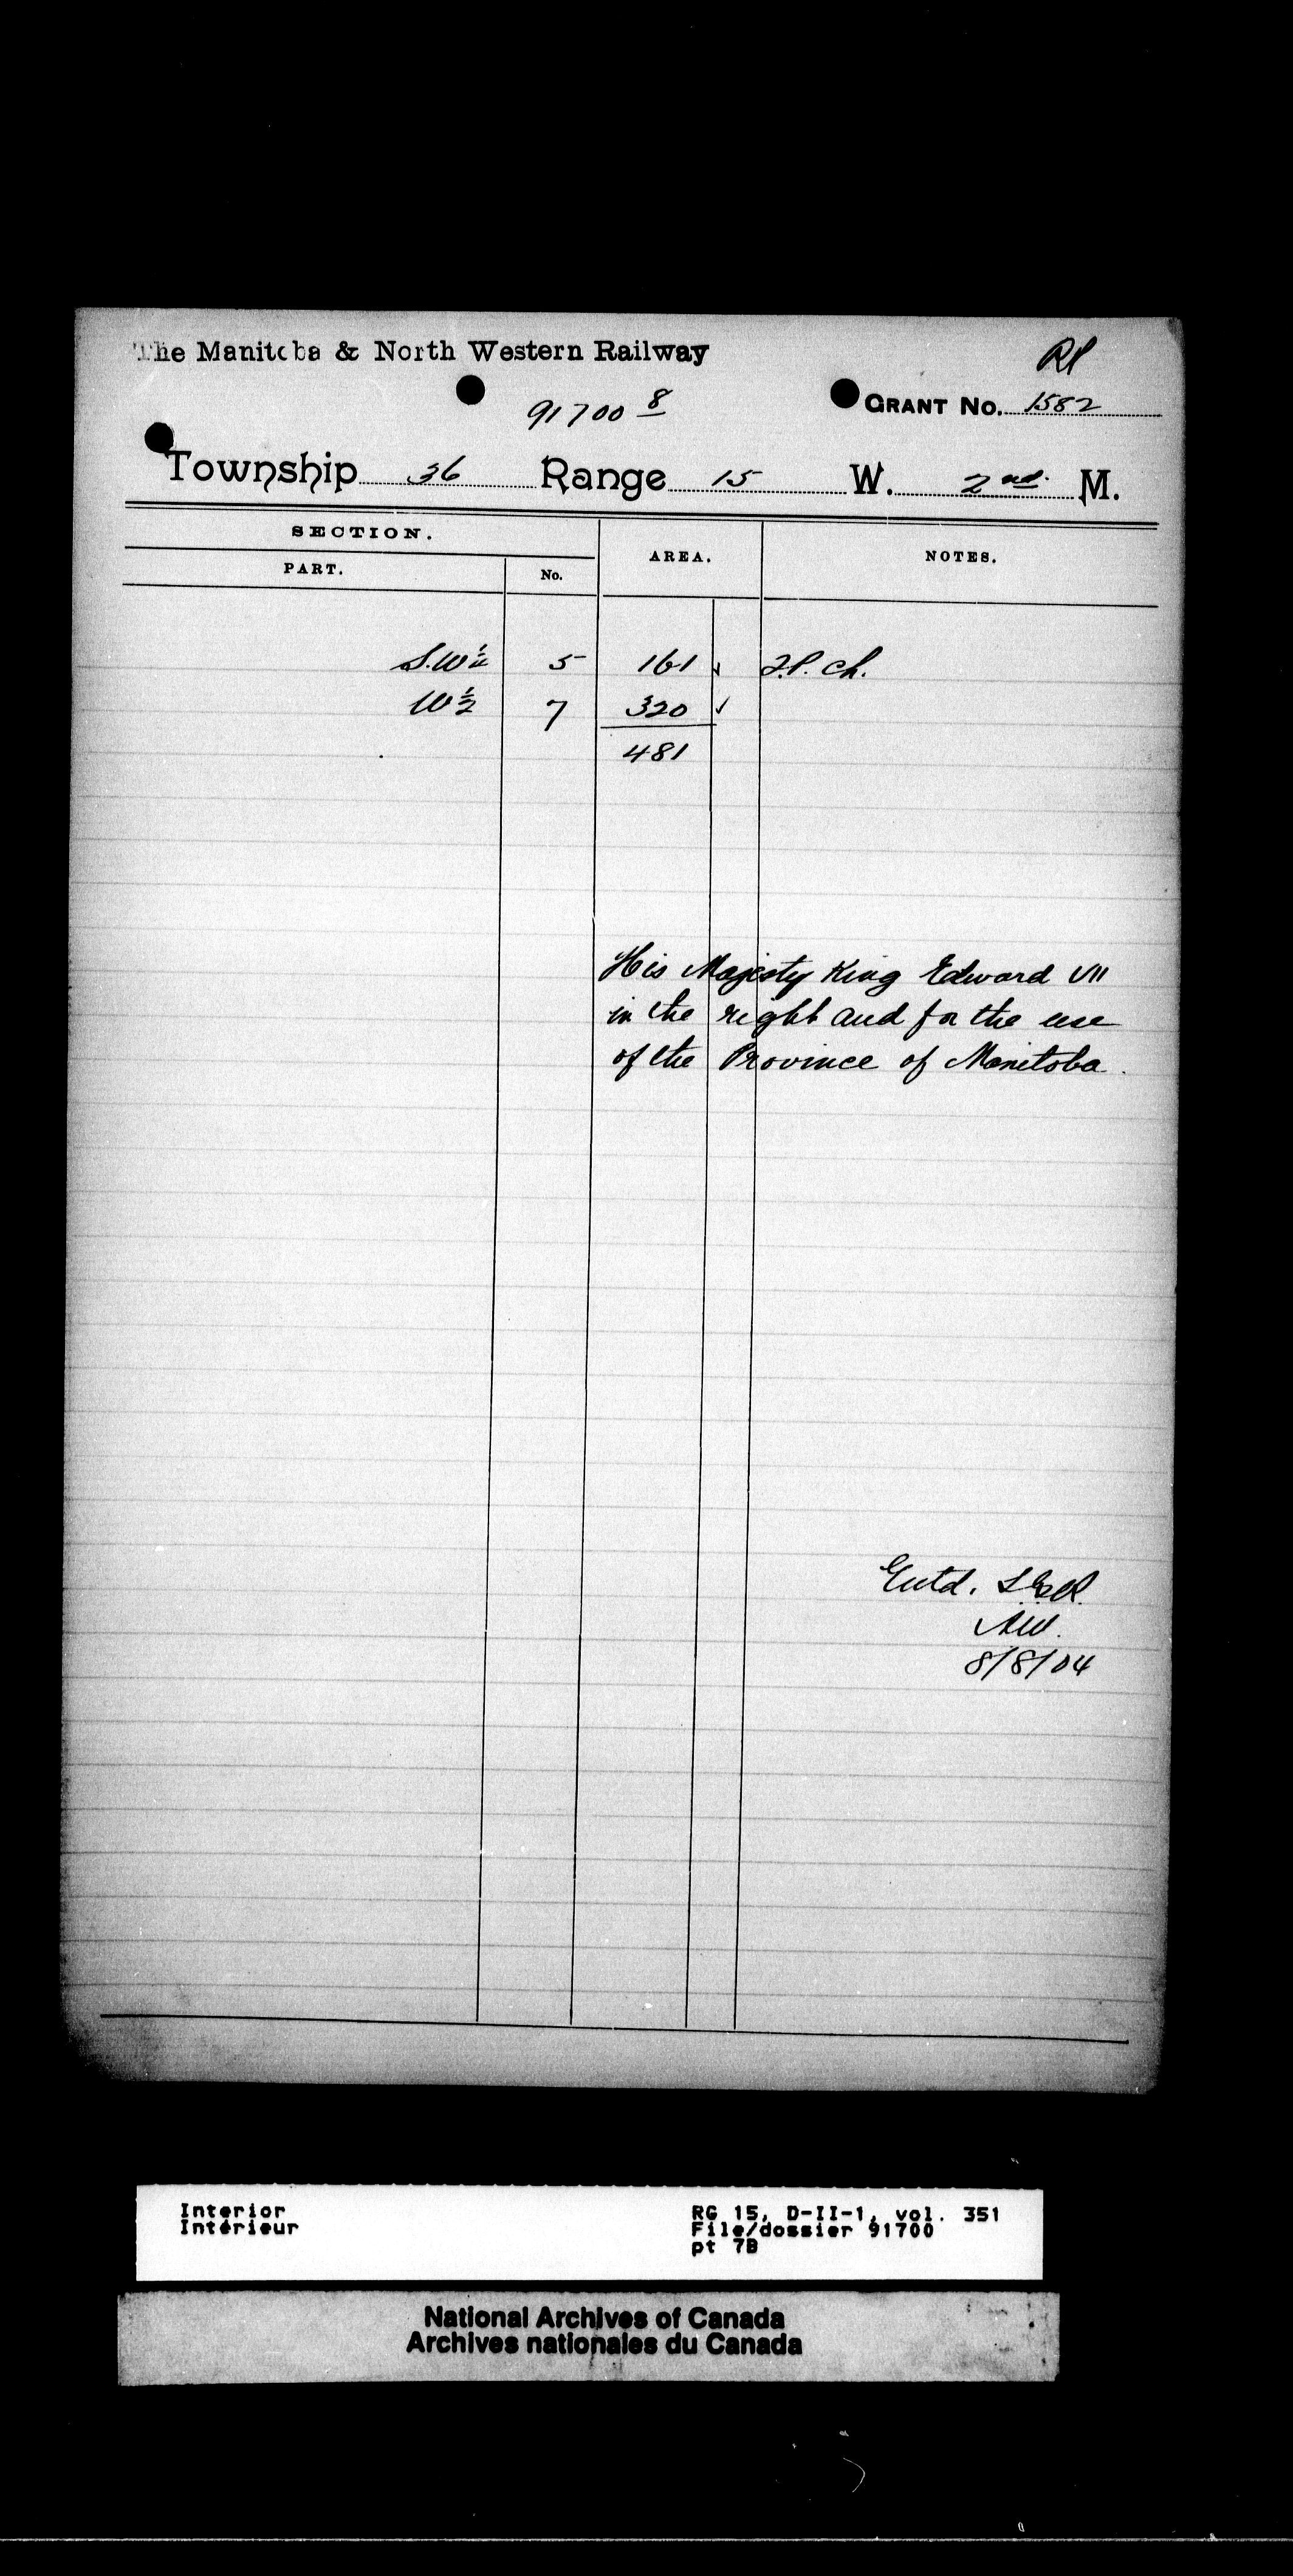 The Manitoba & North Western Railway
Rl
91700 8
GRANT No. 1582
Township 36 Range 15 W. 2nd. M.
SECTION.
PART.
No.
AREA.
NOTES.
S.W¼ 5 161
W½ 7 320 ✓
481
His Majesty King Edward VII
in the right and for the use
of the Province of Manitoba.
Entd.
AW.
8/8/04
Interior
Intérieur
RG 15, D-II-1, vol. 351
File/dossier 91700
pt 7B
National Archives of Canada
Archives nationales du Canada